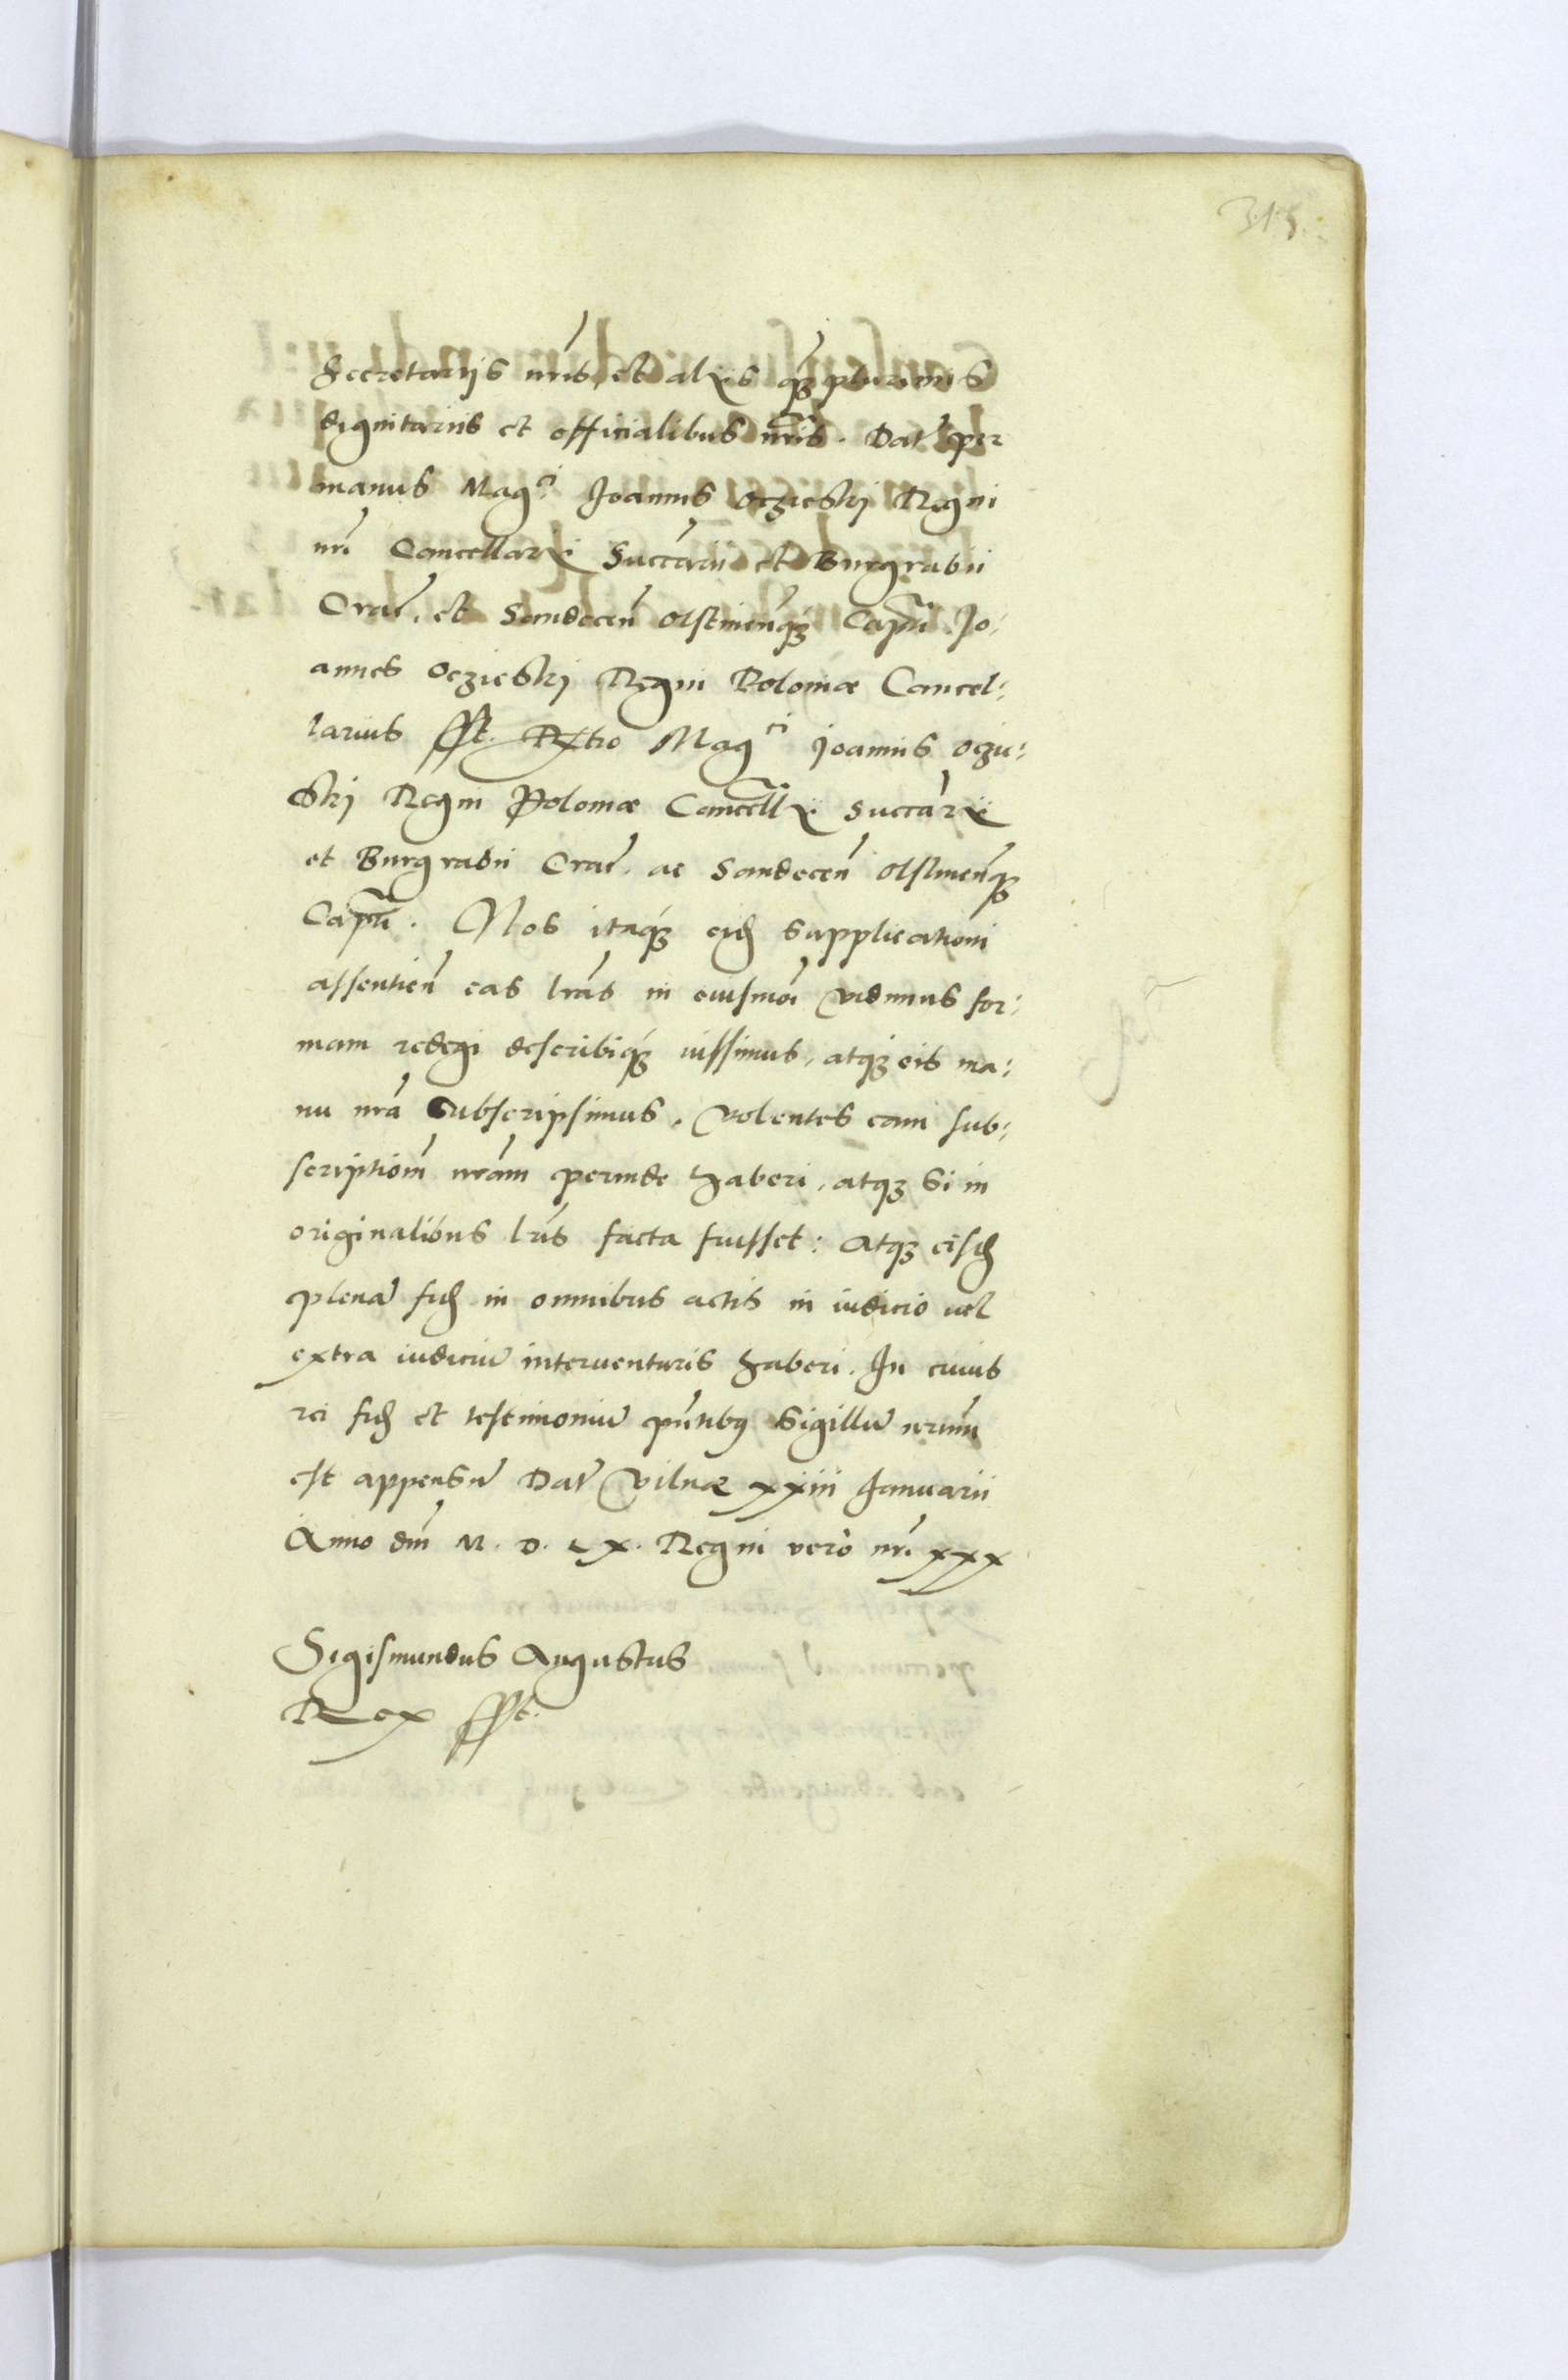 315.
Secretarijs nris, et alijs q̃ plurimis
dignitariis et officialibus nris. Dat per
manus Mag.ci Joannis Oczieskj Regni
nri Cancellarij Succarii et Burgrabii
Crac. et Sandecen̄ Olstinenq₃ Capn̄i. Jo:
annes Oczieskj Regni Poloniæ Cancel:
larius sst. Rꝉtio Mag.ci Joannis Oczie:
skj Regni Poloniæ Cancellrij Succarij
et Burgrabii Crac. ac Sandecen̄ Olstinenq₃
Capn̄i. Nos itaq₃ eid̄ supplicationi
assentien̄ eas lras in eiusmoi vidimus for:
mam redegi describiq₃ iussimus, atq₃ eis ma:
nu nrā subscripsimus. Volentes eam sub:
scriptiom̄ nram perinde haberi, atq₃ si in
originalibus lris facta fuisset: Atq₃ eisd̄
plenā fid̄ in omnibus actis in iudicio vel
extra iudiciū interuenturis haberi. In cuius
rei fid̄ et testimoniū pn̄tibus Sigillū nrum
est appensū Dat Vilnæ xxiii Januarii
Anno dni M. D. LX. Regni vero nri xxx
Sigismundus Augustus
Rex sst.